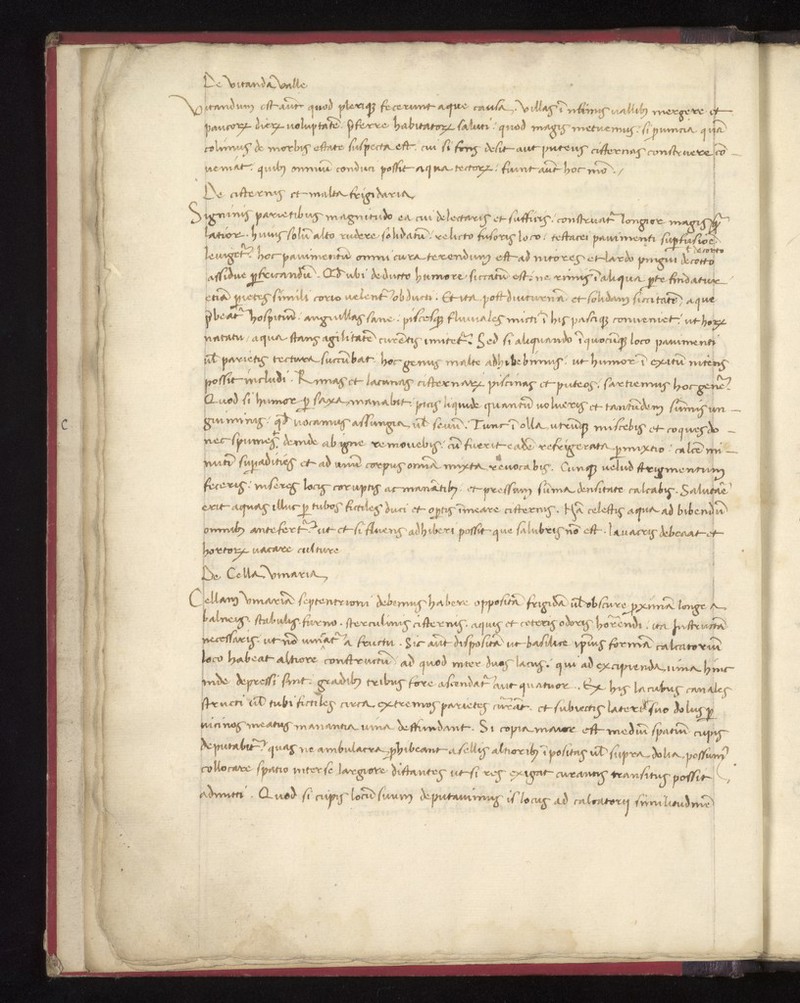 De Vitanda Valle
Vitandum est aũt quod pleriq; fecerunt aque causa, Villas ĩ infimis uallibꝫ mergere et
paucoꝝ dieꝝ uoluptatẽ p̃ferre habitatoꝝ saluti: quod magis metuemus: si puincia quã
colimus de morbis estate suspecta est. cui si fons desit aut puteus cisternas construere cõ
ueniat. quibꝫ omniũ conduci possit aqua tectoꝝ. fiunt aũt hoc mõ.
De cisternis et malta frigidaria
Signinis parietibus magnitudo ea cui delectaris et sufficis. construat̃ longior magis q̃
latior. huius solũ alto rudere solidatũ. relicto fusoris loco: testacei pauimenti supfusiõe
leuiget̃. hoc pauimentũ omni cura terendum est ad nitores et lardo pingui decocto
decocto
assidue pfricandũ. Qd ubi deducto humore siccatũ est: ne rimis ĩ aliqua pte findatur
etiã pieres simili corio uelent̃ obducti. Et ita post diuturnã et solidam siccitatẽ aque
p̃beat̃ hospitiũ. anguillas sane. piscesq; fluuiales micti ĩ his pasciq; conueniet: ut hoꝝ
natatu, aqua stans agilitatẽ curẽtis imitet̃. Sed si aliquando ĩ quocũq; loco pauimenti
ul̃ parietis tectura succũbat. hoc genus malte adhibebimus. ut humor ĩ exitũ nitens
possit includi. Rimas et lacunas cisternaꝝ piscinas et puteos. sartiemus hoc gen̾e.
Quod si humor p saxa manabit: picis liquide quantũ uolueris et tantũdem sumis un
guminis. qd uocamus assungia ul̃ seuũ. Tunc ĩ olla utrũq; miscebis et coques do
nec spumes: deinde ab igne remouebis. cũ fuerit eadẽ refrigerata pmixtio. calcẽ mi
nutĩ supadities et ad unũ corpus omnĩa mixta reuocabis. Cunq; uelud strigmentum
feceris: inseres locis coruptis ac manãtibꝫ. et pressum suma densitate calcabis. Salutare
erit aquas illuc p tubos fictiles duci et optis imeare cisternis. Nã celestis aqua ad bibendũ
omnibꝫ antefert̃: ut et si fluens adhiberi possit que salubris nõ est. lauacris debeat et
hortoꝝ uacare culture
De Cella Vinaria
Cellam Vinariã septentrioni debemus habere oppositã frigidã ul̃ obscure pximã longe a
balneis. stabulis furno. sterculinis cisternis. aquis et ceteris odoris horrendi. ita Instructã
necessariis ut nõ uincat̃ a fructu. Sic aũt dispositã ut basilice ipsius formã calcatoriũ
loco habeat altiore constructũ. ad quod inter duos lacus. qui ad excipienda uina hinc
inde depressi sint. gradibꝫ tribus fere ascendat̃ aut quatuor. Ex his lacubus canales
structi ul̃ tubi fictiles circa extremos parietes currãt. et subiectis lateri suo doliis p
uicinos meatus manantia uina deffundant. Si copia maior est mediũ spatiũ cupis
deputabit̃. quas ne ambulacra phibeant a sellis altioribꝫ ĩ positas ul̃ supra dolia possum̃
collocare spatio inter se largiore distantes ut si res exigat curantis transitus possit
admitti. Quod si cupis locũ suum deputauimus is locus ad calcatorij similitudinẽ
C